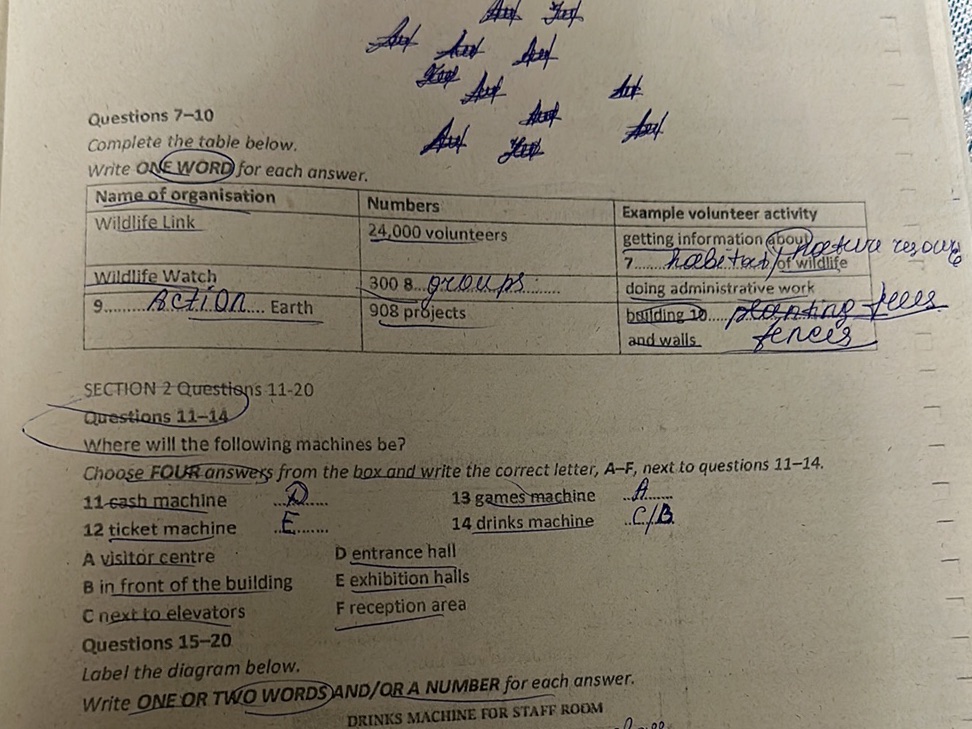 Questions 7–10
Complete the table below.
Write ONE WORD for each answer.
Name of organisation Numbers Example volunteer activity
Wildlife Link 24,000 volunteers getting information about
7........ habitat/ of wildlife nature resource
Wildlife Watch 300 8... groups....... doing administrative work
9.......... Action.... Earth 908 projects building 10..... planting trees
and walls fences
SECTION 2 Questions 11-20
Questions 11–14
Where will the following machines be?
Choose FOUR answers from the box and write the correct letter, A–F, next to questions 11–14.
11 cash machine ...D..... 13 games machine ...A.....
12 ticket machine ..E....... 14 drinks machine ..C/B
A visitor centre D entrance hall
B in front of the building E exhibition halls
C next to elevators F reception area
Questions 15–20
Label the diagram below.
Write ONE OR TWO WORDS AND/OR A NUMBER for each answer.
DRINKS MACHINE FOR STAFF ROOM